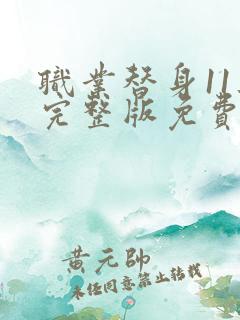 職業替身11
完整版免費
黃元帥
未任同意禁止转载